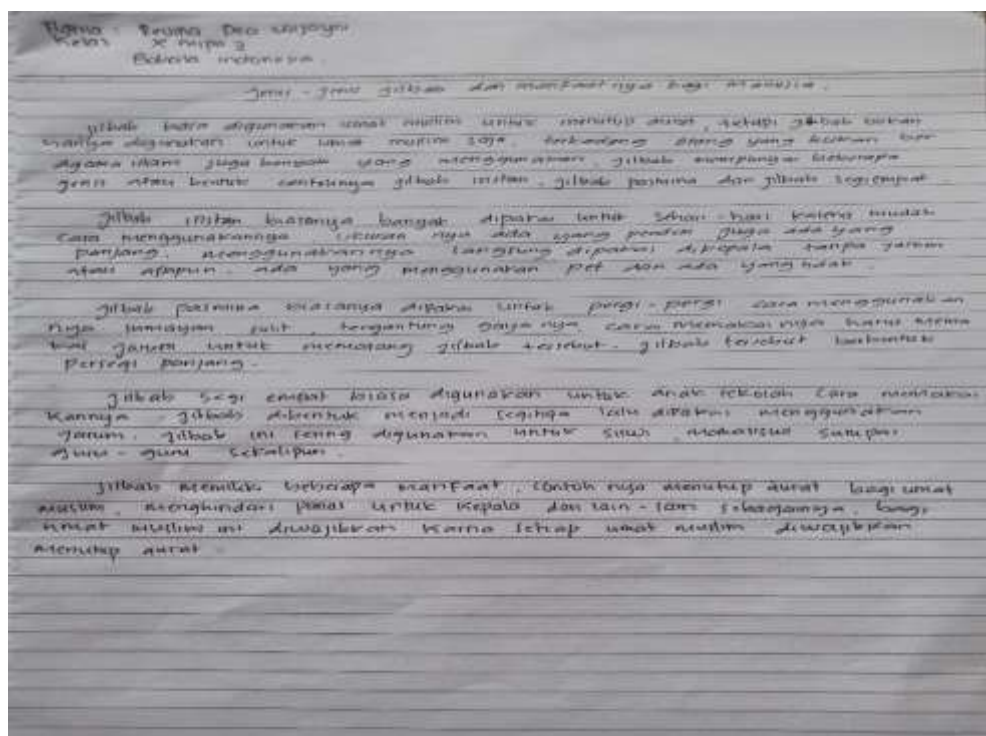 Nama : Reuma Dea Wijayni
Kelas X mipa 3
Bahasa indonesia.
Jenis - Jenis Jilbab dan manfaat nya bagi manusia.
Jilbab biasa digunakan umat muslim untuk menutup aurat, tetapi jilbab bukan
hanya digunakan untuk umat muslim saja, terkadang orang yang bukan ber
agama islam juga banyak yang menggunakan. jilbab mempunyai beberapa
jenis atau bentuk contohnya jilbab instan, jilbab pasmina dan jilbab segi empat.
Jilbab instan biasanya banyak dipakai untuk sehari-hari karena mudah
cara menggunakannya ukuran nya ada yang pendek juga ada yang
panjang. menggunakan nya langsung dipakai dikepala tanpa jarum
atau apapun. ada yang menggunakan pet dan ada yang tidak.
Jilbab pasmina biasanya dipakai untuk pergi-pergi cara menggunakan
nya lumayan sulit, tergantung gaya nya, cara memakai nya harus mema
kai jarum untuk memasang jilbab tersebut. jilbab tersebut berbentuk
persegi panjang.
Jilbab segi empat biasa digunakan untuk anak sekolah cara memakai
kannya jilbab dibentuk menjadi segitiga lalu dipakai menggunakan
jarum. jilbab ini sering digunakan untuk siswi, mahasiswi sampai
guru - guru sekalipun.
Jilbab memiliki beberapa manfaat, contoh nya menutup aurat bagi umat
muslim, menghindari panas untuk kepala dan lain-lain sebagainya. bagi
umat muslim ini diwajibkan karna setiap umat muslim diwajibkan
menutup aurat.